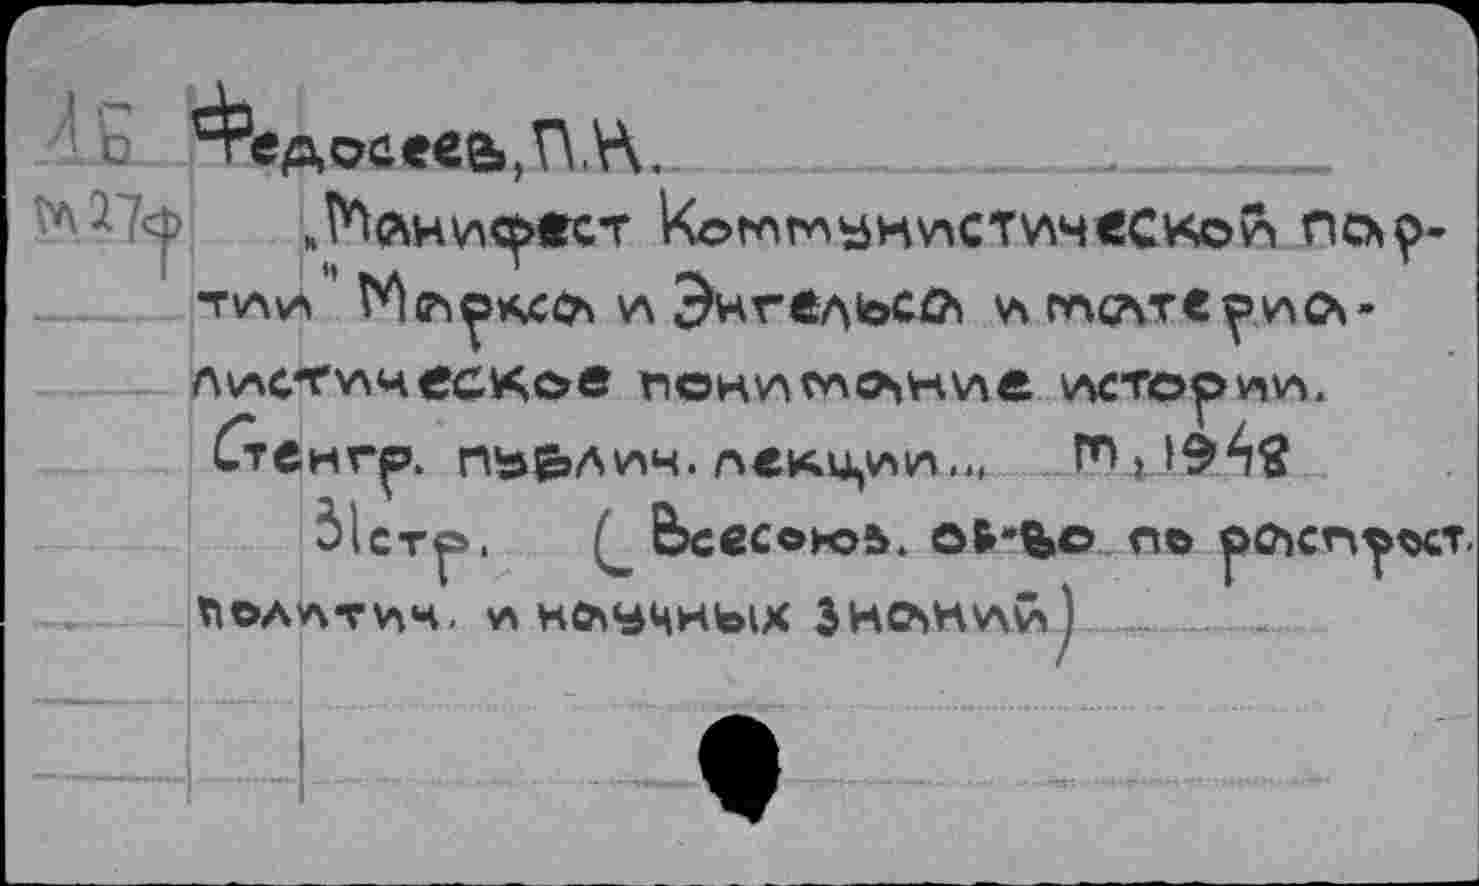 1Б Федосеев, П.Н.
М27ф „Манифест Коммунистической пар-
тии" Маркса и Энгельса и материа-
листическое понимание истории.
Стенгр. публич. лекции... М, 1948
31стр. (Всесоюз. об-во по распрост.
политич. и научных знаний)